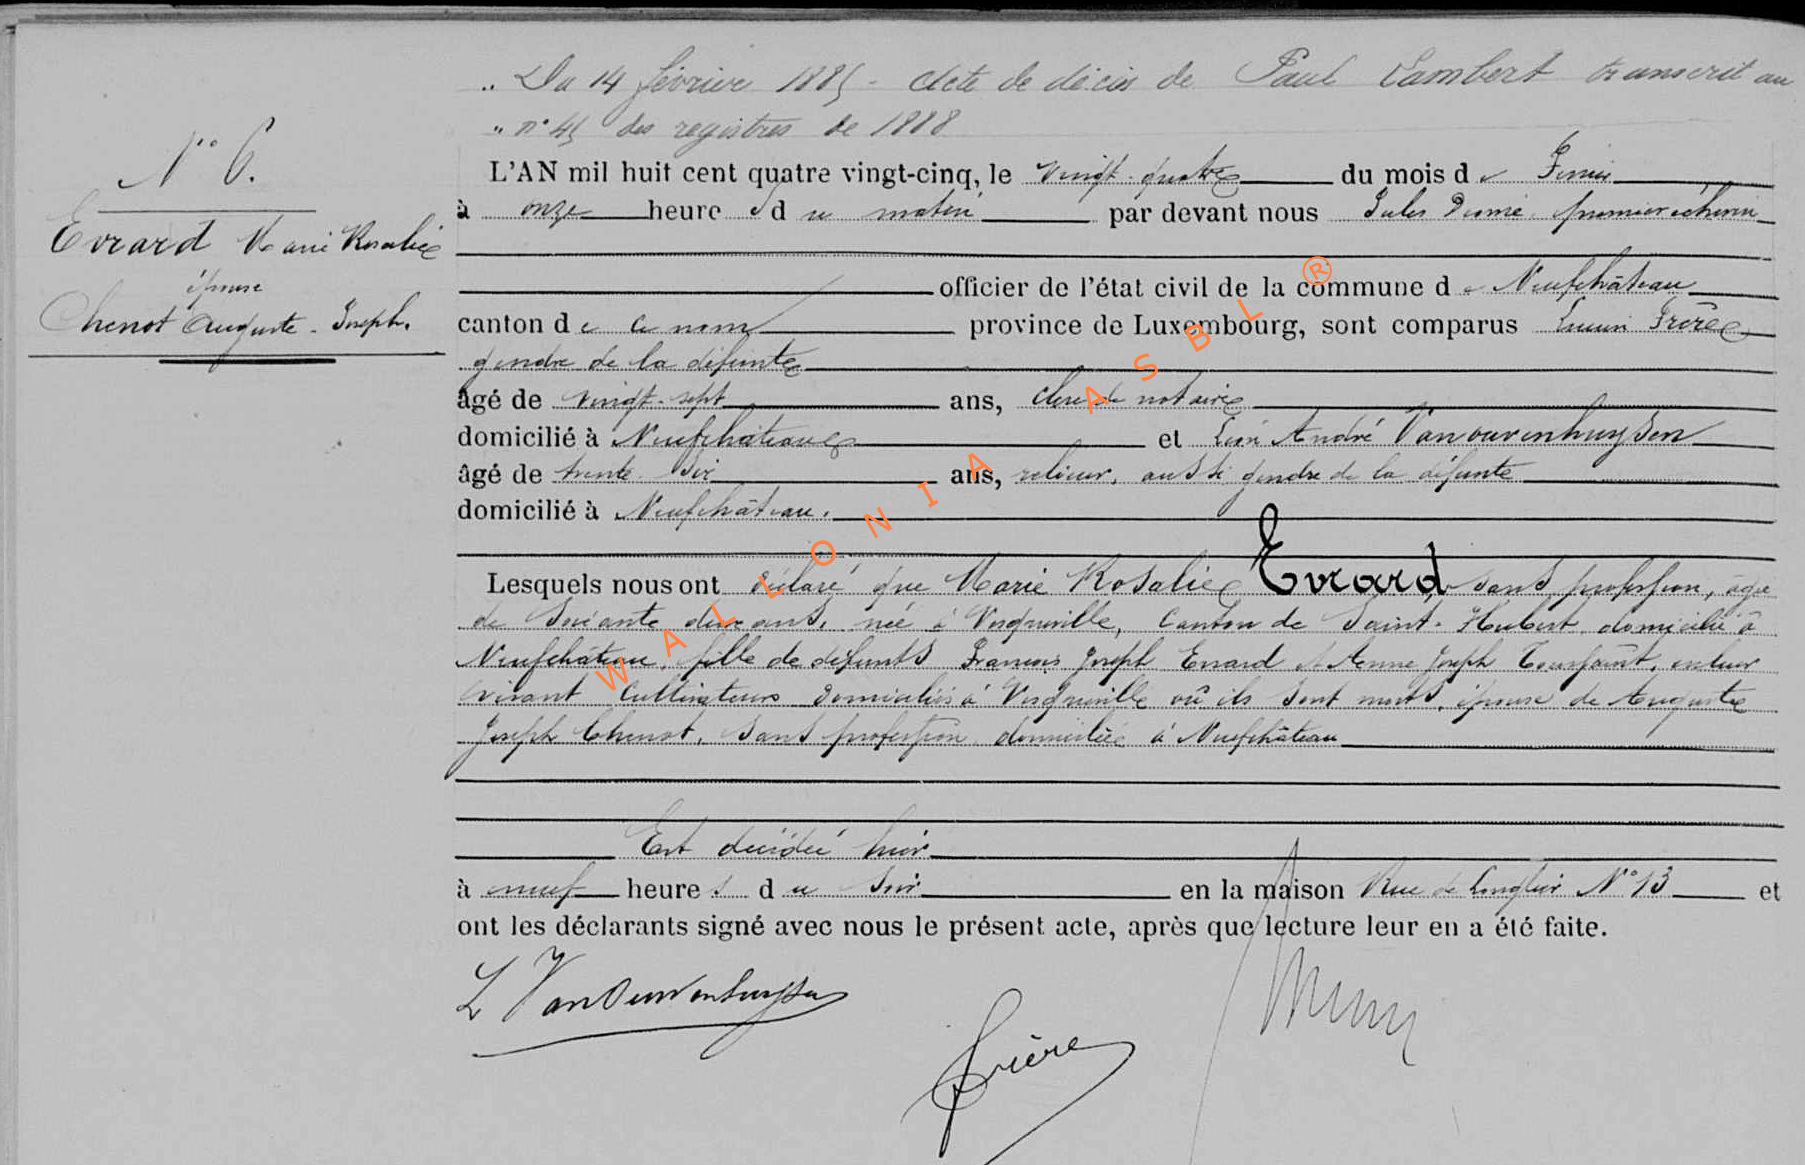 „ Du 14 février 1885 - Acte de décès de Paul Lambert transcrit au
„ n° 45 des registres de 1888
N° 6.
Evrard Marie Rosalie
épouse
Chenot Auguste-Joseph.
L'AN mil huit cent quatre vingt-cinq, le vingt-quatre du mois de
à onze heures du matin par devant nous Jules premier échevin
officier de l'état civil de la commune de Neufchâteau
canton de ce nom province de Luxembourg, sont comparus Frère
gendre de la défunte
âgé de vingt-sept ans, clerc de notaire
domicilié à Neufchâteau et Léon André Vanouwenhuysen
âgé de trente-six ans, relieur, aussi gendre de la défunte
domicilié à Neufchâteau.
Lesquels nous ont déclaré que Marie Rosalie Evrard sans profession, âgée
de soixante deux ans, née à Vesqueville, Canton de Saint-Hubert, domiciliée à
Neufchâteau, fille de défunts François Joseph Evrard et Anne Joseph Toussaint, en leur
vivant cultivateurs domiciliés à Vesqueville où ils sont morts, épouse de Auguste
Joseph Chenot, sans profession domicilié à Neufchâteau
Est décédée hier
à neuf heures du soir en la maison Rue de Longlier N° 13 et
ont les déclarants signé avec nous le présent acte, après que lecture leur en a été faite.
L Vanouwenhuysen
Frère
WALLONIA ASBL ®